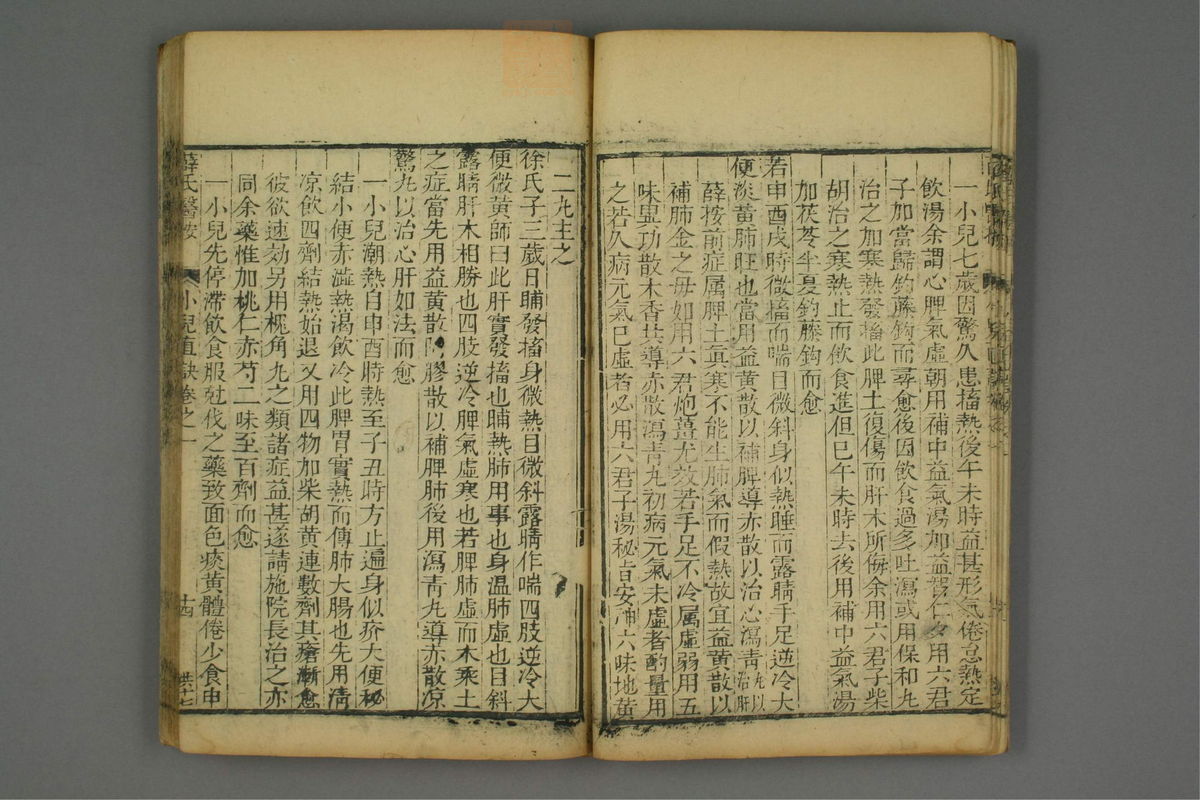 一小兒七歲因驚久患搐熱後午未時益甚形氣倦怠熱定
飲湯余謂心脾氣虛朝用補中益氣湯加益智仁夕用六君
子加當歸鈎藤鈎而尋愈後因飲食過多吐瀉或用保和丸
治之加寒熱發搐此脾土復傷而肝木所侮余用六君子柴
胡治之寒熱止而飲食進但巳午未時去後用補中益氣湯
加茯苓半夏鈎藤鈎而愈
若申酉戌時微搐而喘目微斜身似熱睡而露睛手足逆冷大
便淡黃肺旺也當用益黃散以補脾導赤散以治心瀉青丸以治肝
薛按前症属脾土眞寒不能生肺氣而假熱故宜益黃散以
補肺金之母如用六君炮薑尤效若手足不冷属虛弱用五
味異功散木香共導赤散瀉青丸初病元氣未虛者酌量用
之若久病元氣已虛者必用六君子湯秘旨安神六味地黃
二丸主之
徐氏子三歲日晡發搐身微熱目微斜露睛作喘四肢逆冷大
便微黃師曰此肝實發搐也晡熱肺用事也身温肺虛也目斜
露睛肝木相勝也四肢逆冷脾氣虛寒也若脾肺虛而木乘土
之症當先用益黃散阿膠散以補脾肺後用瀉青丸導赤散凉
驚丸以治心肝如法而愈
一小兒潮熱自申酉時熱至子丑時方止遍身似疥大便秘
結小便赤澁熱渴飲冷此脾胃實熱而傳肺大腸也先用清
凉飲四劑結熱始退又用四物加柴胡黃連數劑其瘡漸愈
彼欲速効另用槐角丸之類諸症益甚遂請施院長治之亦
同余藥惟加桃仁赤芍二味至百劑而愈
一小兒先停滯飲食服尅伐之藥致面色痰黃體倦少食申
薛氏醫按
小兒直訣卷之一
十四